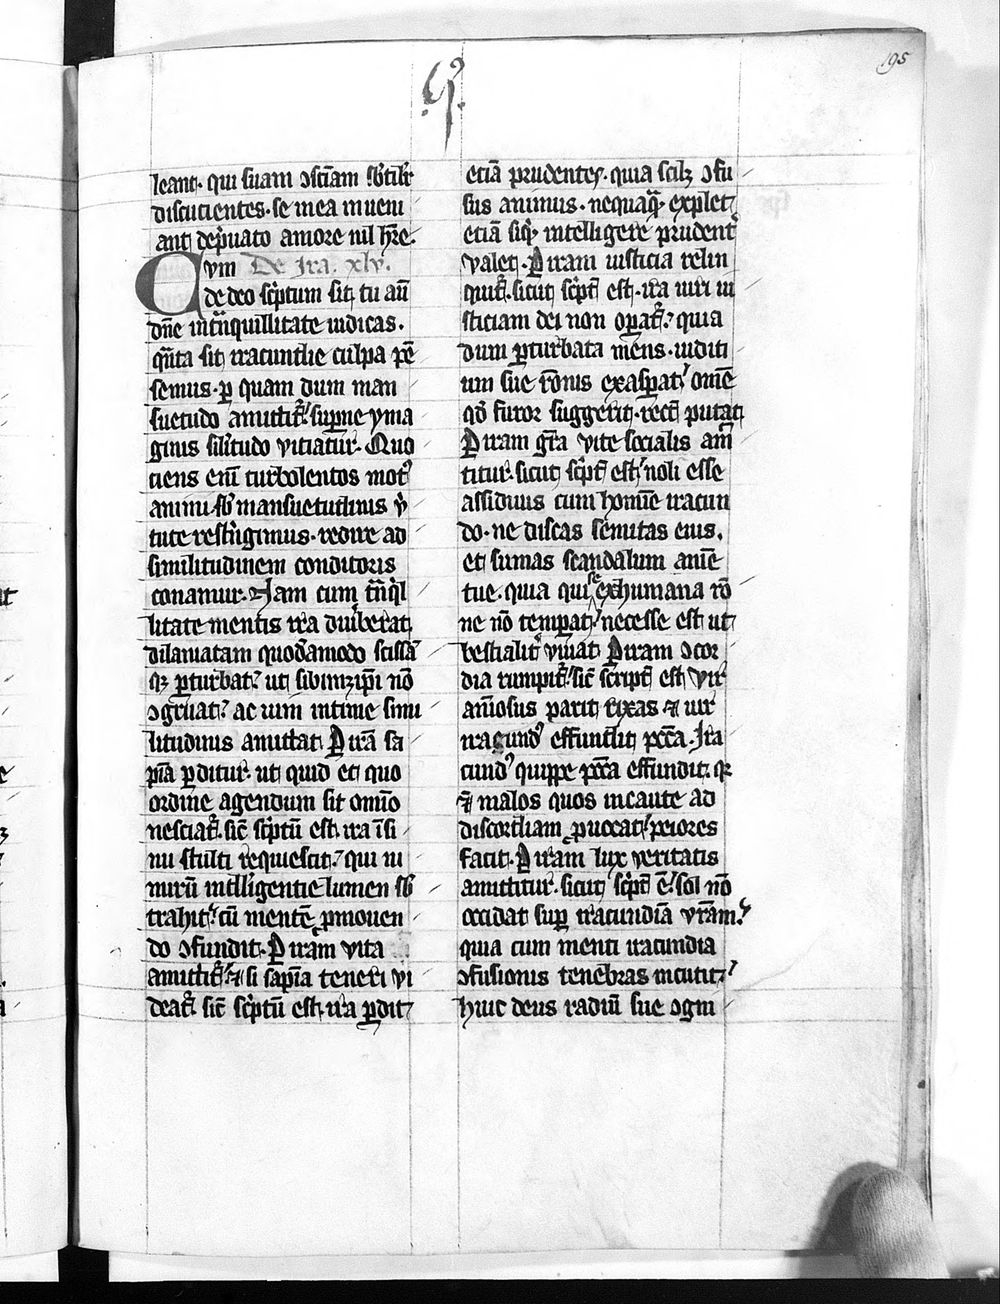 195
leant. qui suam ↄsciam sbtilit
discucientes. se in ea inueni
ant depuato amore nil hre.
Cum De Ira. xlv.
de deo sc͛ptum sit tu aū
dn̄e in t͛nquillitate iudicas.
q͛nta sit iracundie culpa pē
semus. ꝑ quam dum man
suetudo amittit͛: supne yma
ginis silitudo vitiatur. Quo
ciens eni turbolentos mot᷒
animi sb mansuetudinis v͛
tute rest͛ngimus. redire ad
similitudinem conditoris
conamur. Nam cum t͛nq͛l
litate mentis ira diuberat
dilaniatam quodāmodo scissā
qꝫ ꝑturbat: ut sibimꝫipi nō
ↄgruat: ac uim intime simi
litudinis amittat. P irā sa
piā ꝑditur. ut quid et quo
ordine agendum sit omīo
nesciat͛. sic sc͛ptū est. ira ī si
nu stulti requiescit: qui ni
mirū intelligentie lumen sb
trahit: cū mentē ꝑmouen
do ↄfundit. P iram vita
amittit͛: ⁊ si sapīa teneri vi
deat͛. sic sc͛ptū est. ira ꝑdit
etiā prudentes. quia scilꝫ ↄfu
sus animus. nequaqͣ explet
etiā siqͥ intelligere prudent͛
valet. P iram iusticia relin
quit͛. sicut sc͛pt̄ est. ira uiri iu
sticiam dei non opat͛: quia
dum ꝑturbata mens. iudici
um sue rōnis exasperat: omē
qd̄ furor suggerit. rectū putat
P iram gr̄a vite socialis am̄
titur. sicut sc͛pt̄ est: noli esse
assiduus cum homīe iracun
do. ne discas semitas eius.
et sumas scandalum anīe
tue. quia qui se ex humana rō
ne nō tempat: necesse est ut
bestialit͛ viuat. P iram ↄcor
dia rumpit͛: sic script̄ est vir
aīosus parit rixas ⁊ uir
iracund᷒ effundit pcc̄a. Ira
cund᷒ quippe pcc̄a effundit. qꝛ
⁊ malos quos incaute ad
discordiam ꝓuocat: peiores
facit. P iram lux veritatis
amittitur. sicut sc͛pt̄ ē: sol nō
occidat sup iracundiā vr̄am:
quia cum menti iracundia
ↄfusionis tenebras incutit:
huic deus radiū sue ↄgni